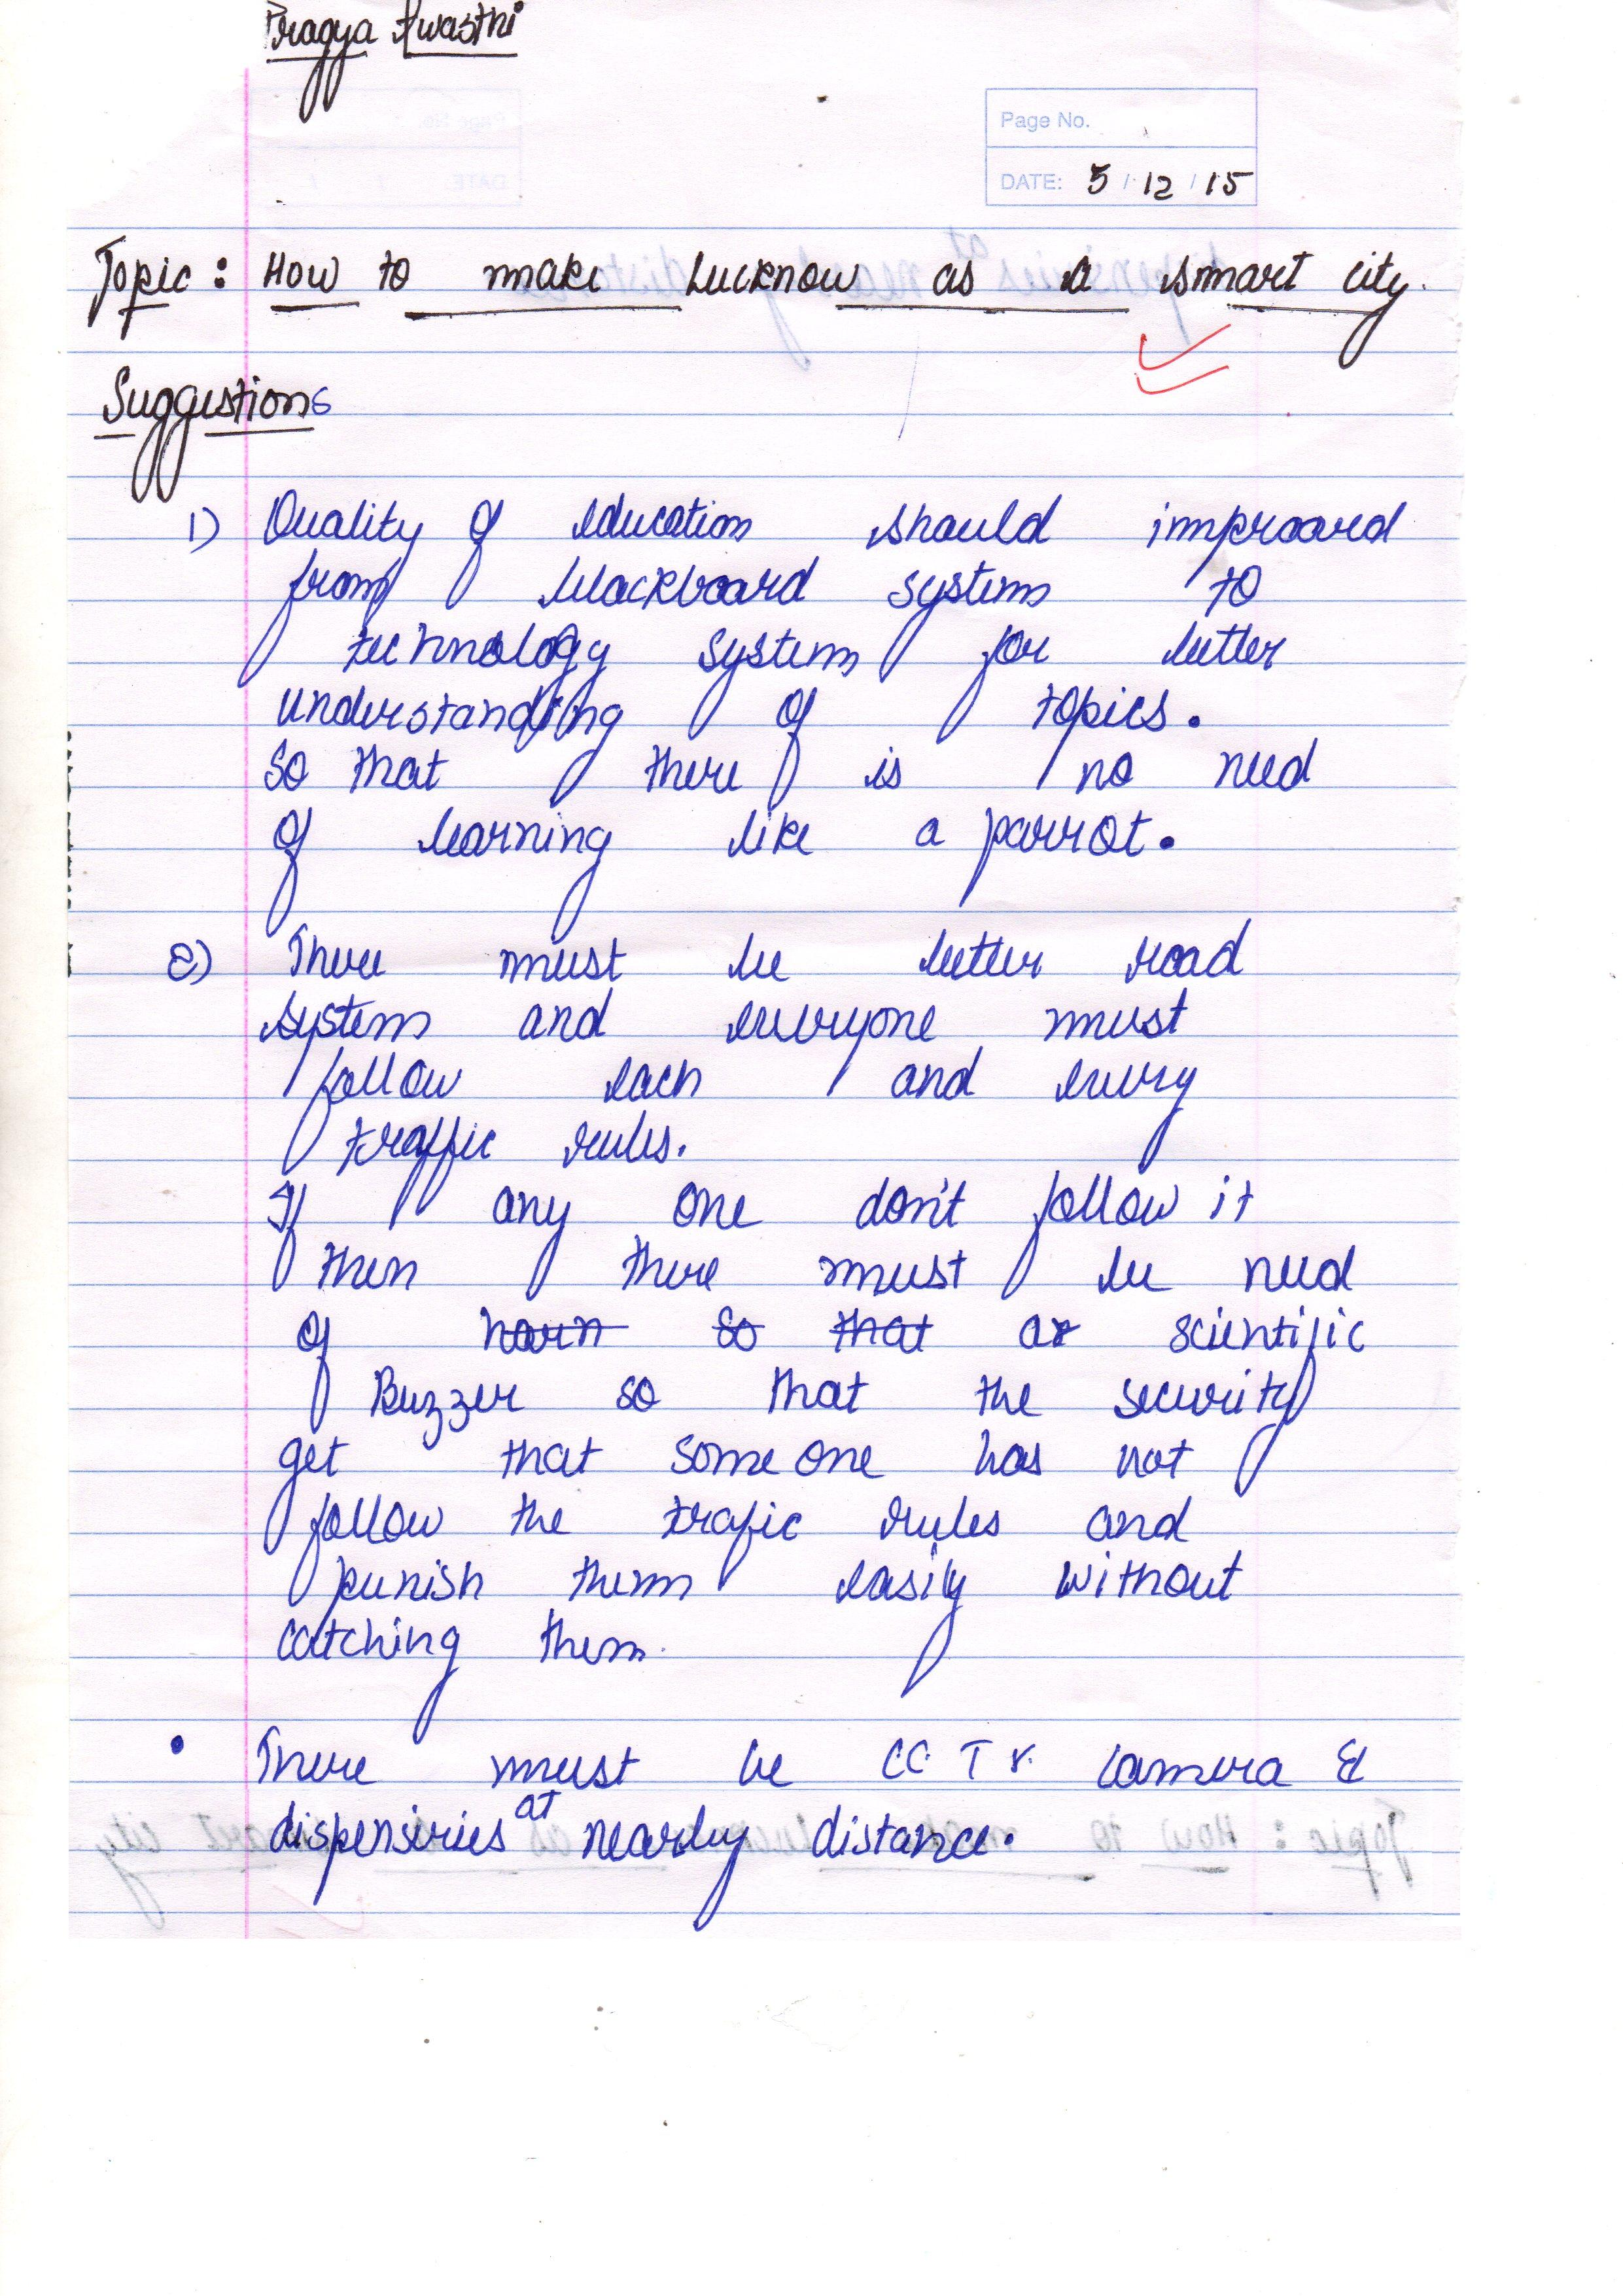 Pragya Awasthi
Page No.
DATE: 5/12/15
Topic: How to make Lucknow as a smart city.
Suggestions
1) Quality of education should improved
from blackboard system to
technology system for better
understanding of topics.
So that there is no need
of learning like a parrot.
2) There must be better road
system and everyone must
follow each and every
traffic rules.
If any one don't follow it
then there must be need
of horn so that a scientific
Buzzer so that the security
get that some one has not
follow the trafic rules and
punish them easily without
catching them.
• There must be CCTV camera &
dispenseries at nearby distance.